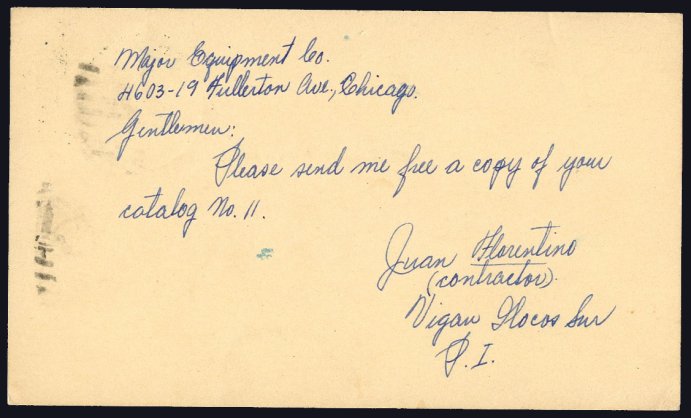 Major Equipment Co.
4603-19 Fullerton Ave., Chicago.
Gentlemen:
Please send me free a copy of your
catalog No. 11.
Juan Florentino
(contractor).
Vigan Ilocos Sur
P. I.